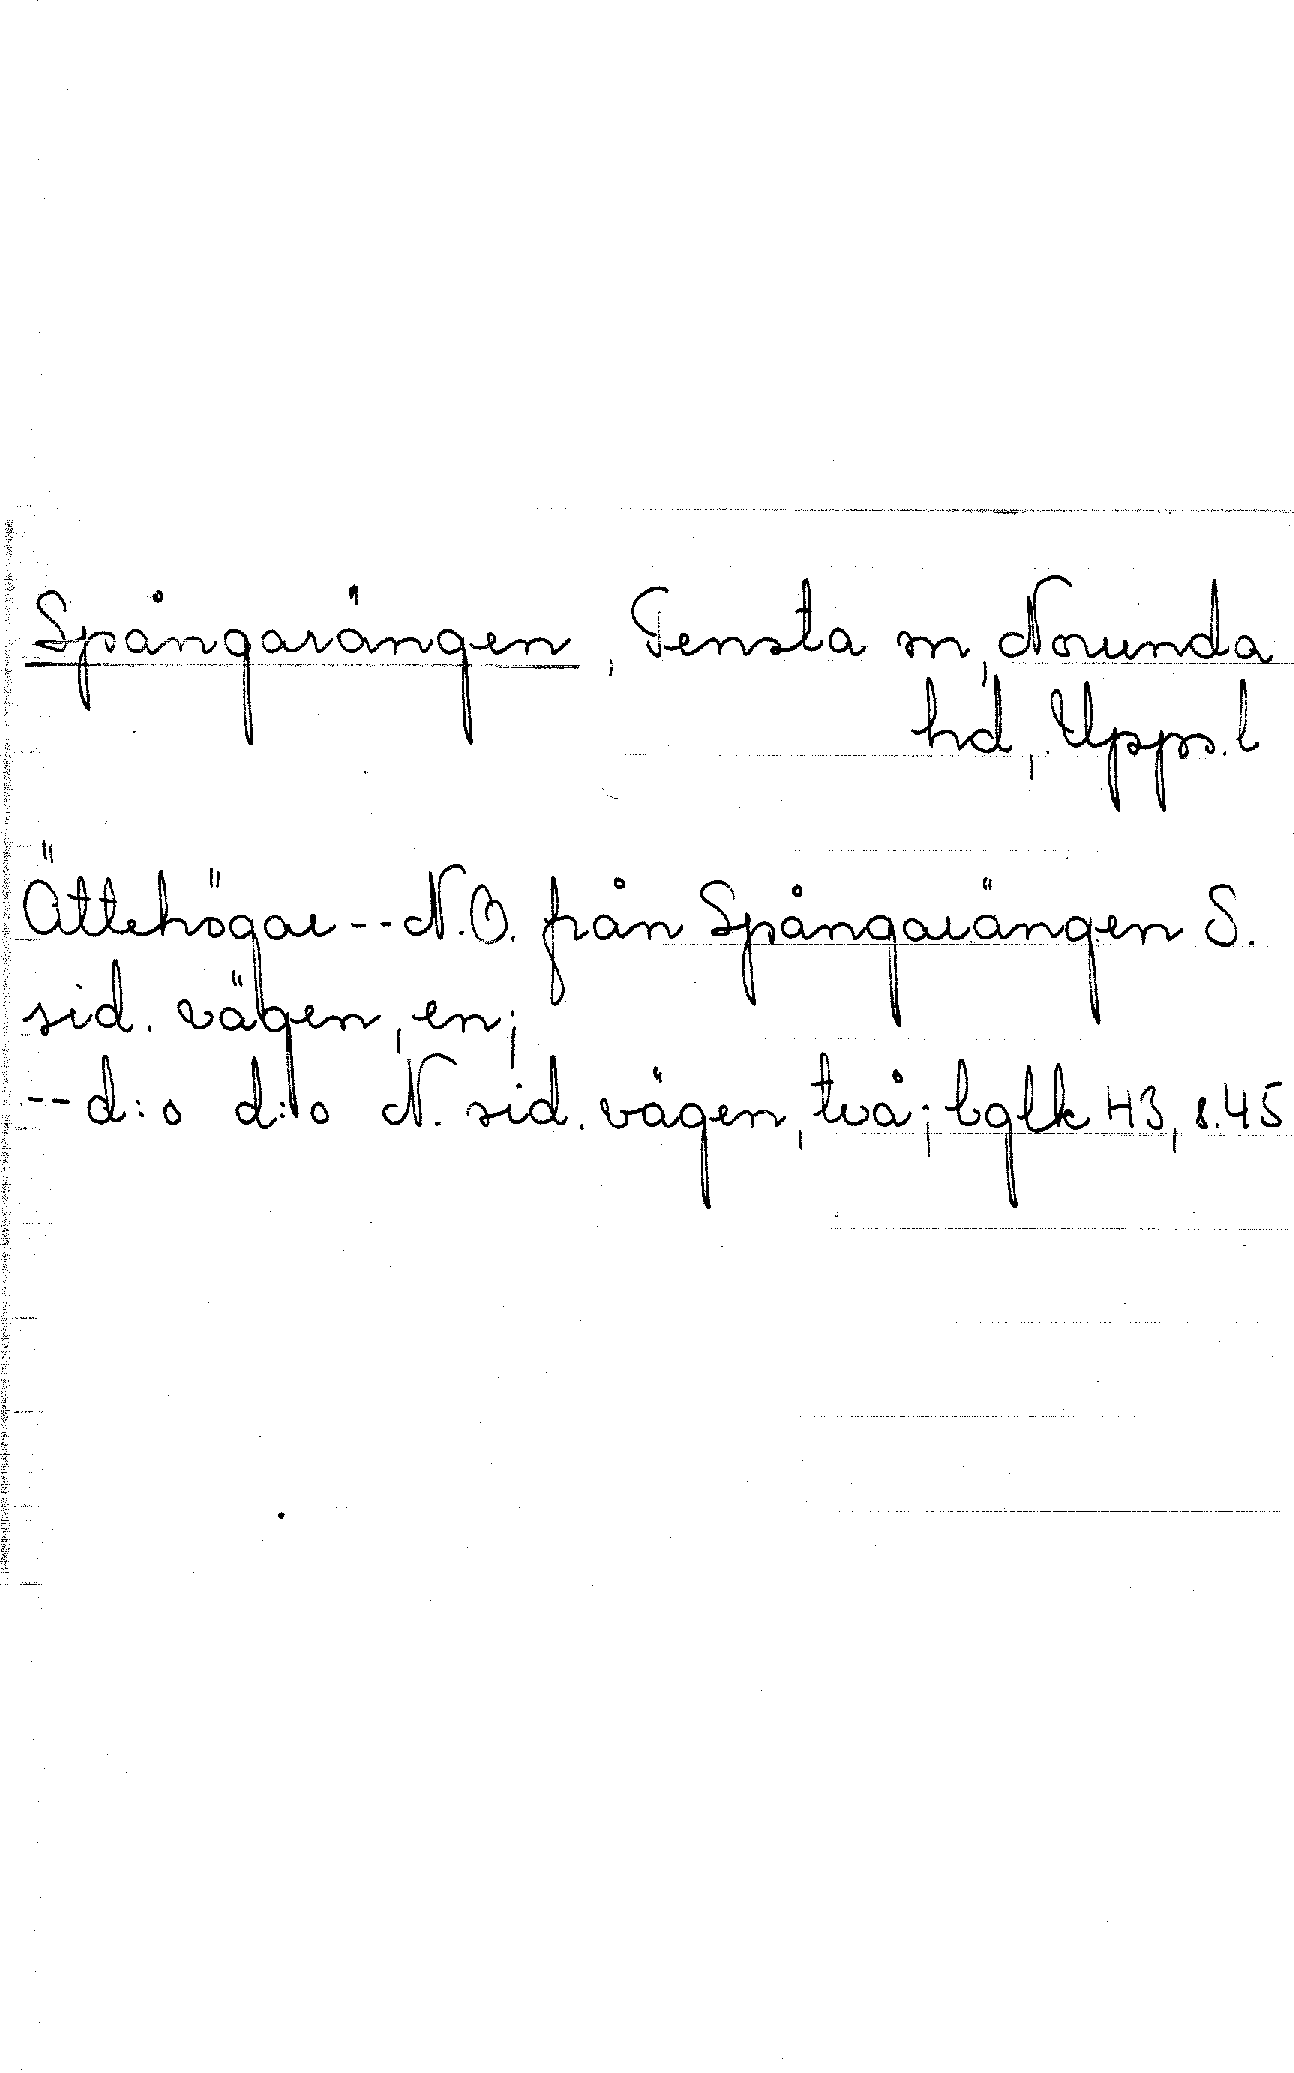 Spångarängen, Tensta sn, Norunda
hd, Upps. l
Ättehögar -- N.O. från Spångarängen S.
sid. vägen, en;
-- d:o d:o N. sid. vägen, två; bglk 43, s. 45